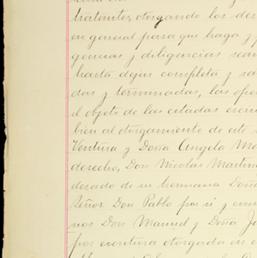 tratantes, otorgando los der
en general para que haga y p
gencias y diligencias sean
hasta dejar completa y sa
das y terminadas, las oper
el objeto de las citadas escri
bien al otorgamiento de este
Ventura y Doña Angela Ma
derecho, Don Nicolas Martin
derado de su hermana Doña
Señor Don Pablo por si y com
nos Don Manuel y Doña Jo
por escritura otorgada en